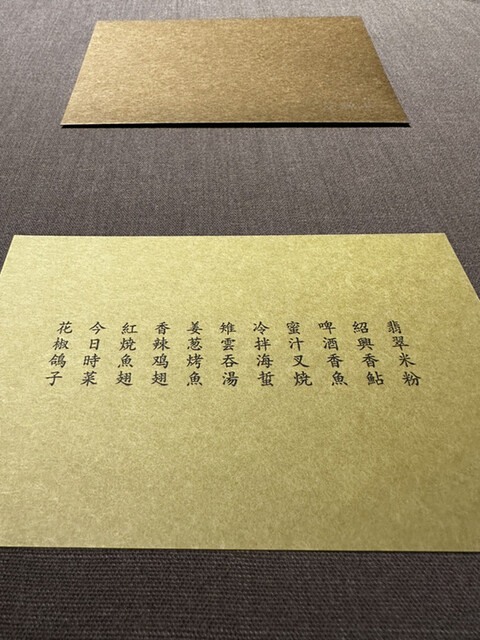 翡翠米粉
紹興香鮎
啤酒香魚
蜜汁叉焼
冷拌海蜇
雉雲吞湯
姜葱烤魚
香辣鸡翅
紅焼魚翅
今日時菜
花椒鸽子